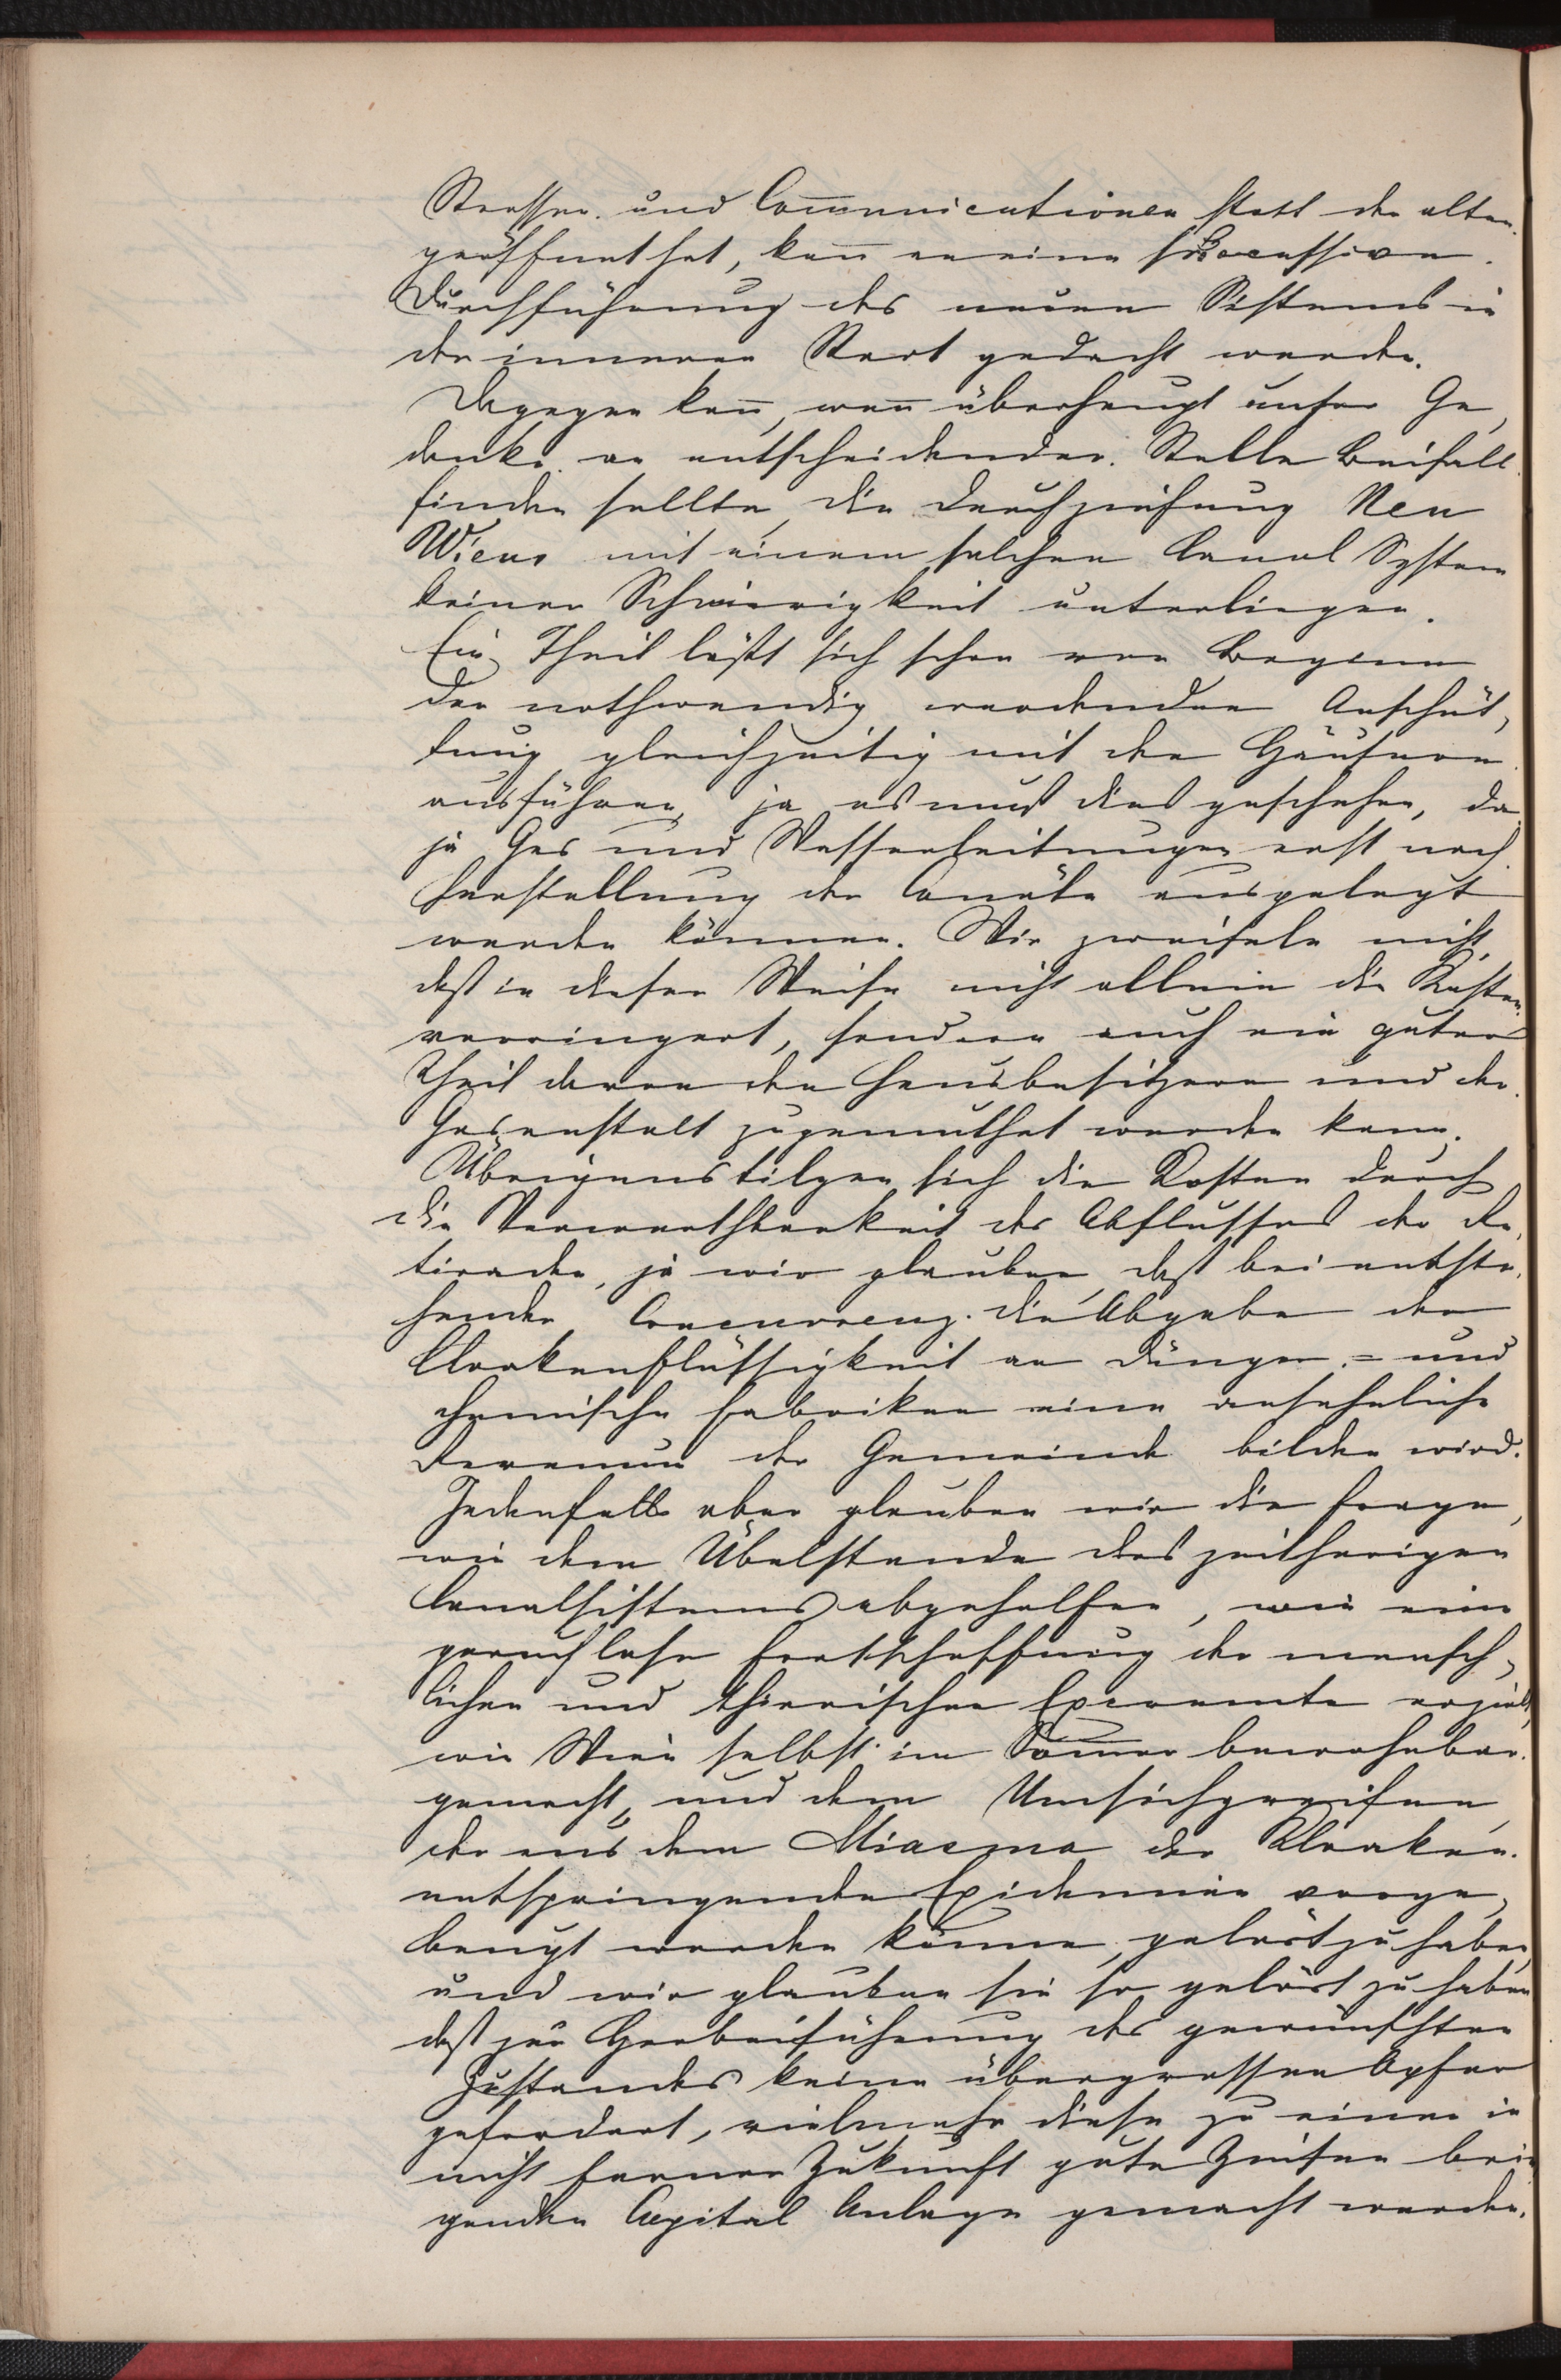 Strassen und Com̅unicationen statt der alten
geöffnet hat, kan̅ an eine successive
Durchführung des neuen Sistems in
der inneren Stadt gedacht werden.
Dagegen kan̅, wen̅ überhaupt unser Ge,
danke an entscheidender Stelle Beifall
finden sollte, die Durchziehung Neu
Wiens mit einem solchen Canal System
keiner Schwierigkeit unterliegen.
Ein Theil läßt sich schon von Beginn
der nothwendig werdenden Anschüt,
tung gleichzeitig mit den Häusern
ausführen, ja es muß dies geschehen, da
ja Gas und Wasserleitungen erst nach
Herstellung der Canäle ausgelegt
werden können. Wir zweifeln nicht,
daß in dieser Weise nicht allein die Kosten
verringert, sondern auch ein guter
Theil davon den Hausbesitzern und der
Gasanstalt zugemuthet werden kann.
Übrigens tilgen sich die Kosten durch
die Verwerthbarkeit des Abflusses der Re,
tiraden, ja wir glauben, daß bei entste,
hender Concurrenz die Abgabe der
Cloakenflüssigkeit an Dünger = und
chemische Fabriken eine ansehnliche
Revenue der Gemeinde bilden wird.
Jedenfalls aber glauben wir die Frage,
wie dem Übelstande des zeitherigen
Canalsistems abgeholfen, wie eine
geruchlose Fortschaffung der mensch,
lichen und thierischen Excremente erzielt,
wie Wien selbst im Som̅er bewohnbar
gemacht, und dem Umsichgreifen
der aus dem Miasma der Kloaken
entspringenden Epidemien vorge,
beugt werden könne, gelöst zu haben,
und wir glauben sie so gelöst zu haben
daß zur Herbeiführung des gewünschten
Zustandes keine übergrossen Opfer
gefordert, vielmehr diese zu einer in
nicht ferner Zukunft gute Zinsen brin
genden Capital Anlage gemacht werden.